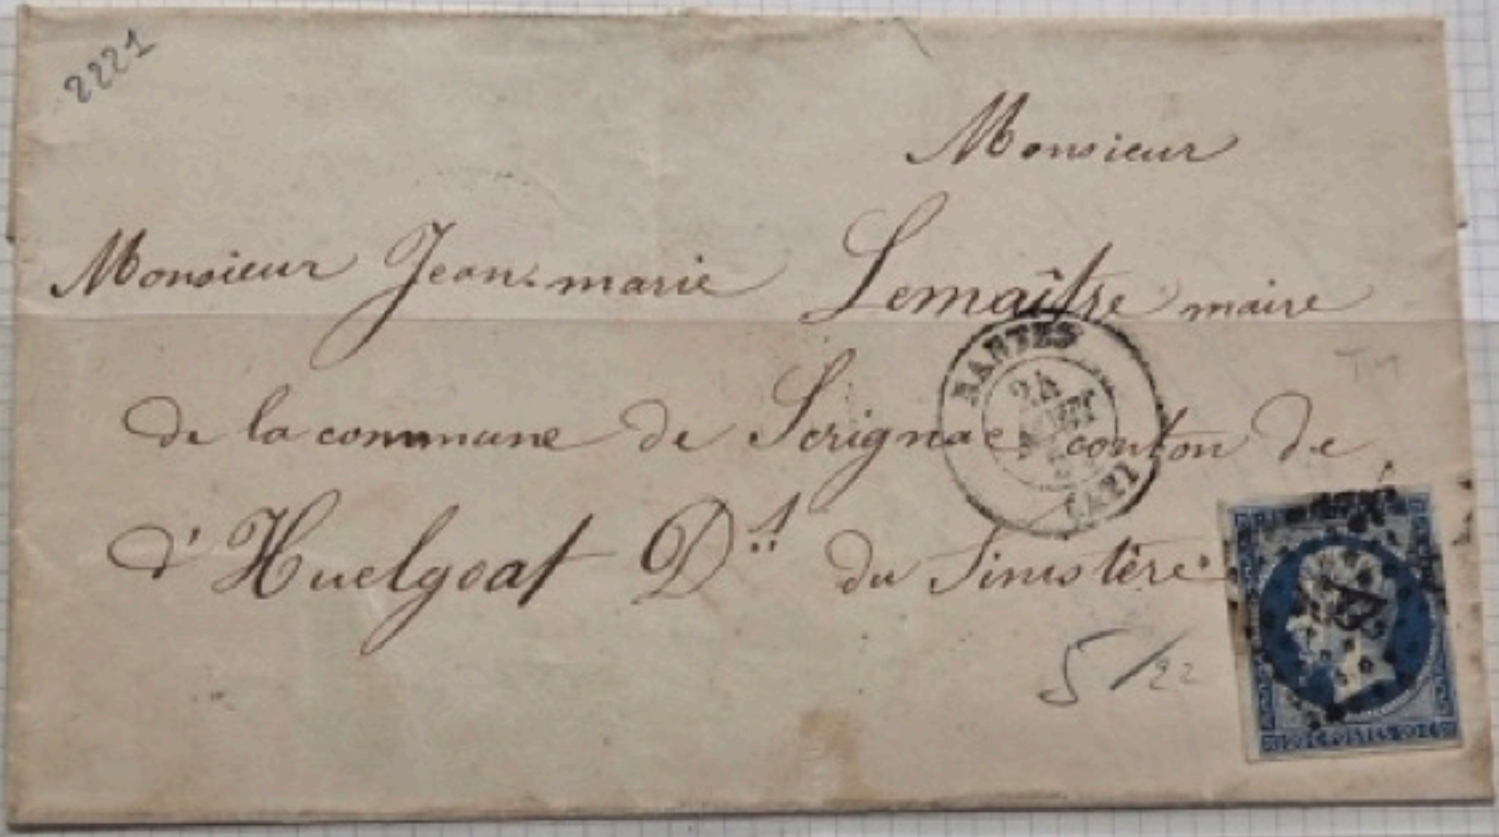 2221
Monsieur
Monsieur Jean-marie Lemaître maire
de la commune de Scrignac canton de
d'Huelgoat Dt du Finistère
NANTES
24
(42)
5/22
20 C POSTES 20 C